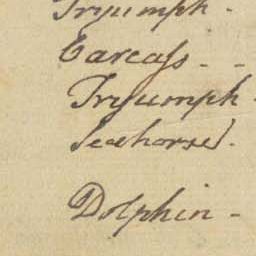 Tryumph -
Carcass - -
Tryumph -
Seahorse.
Dolphin -